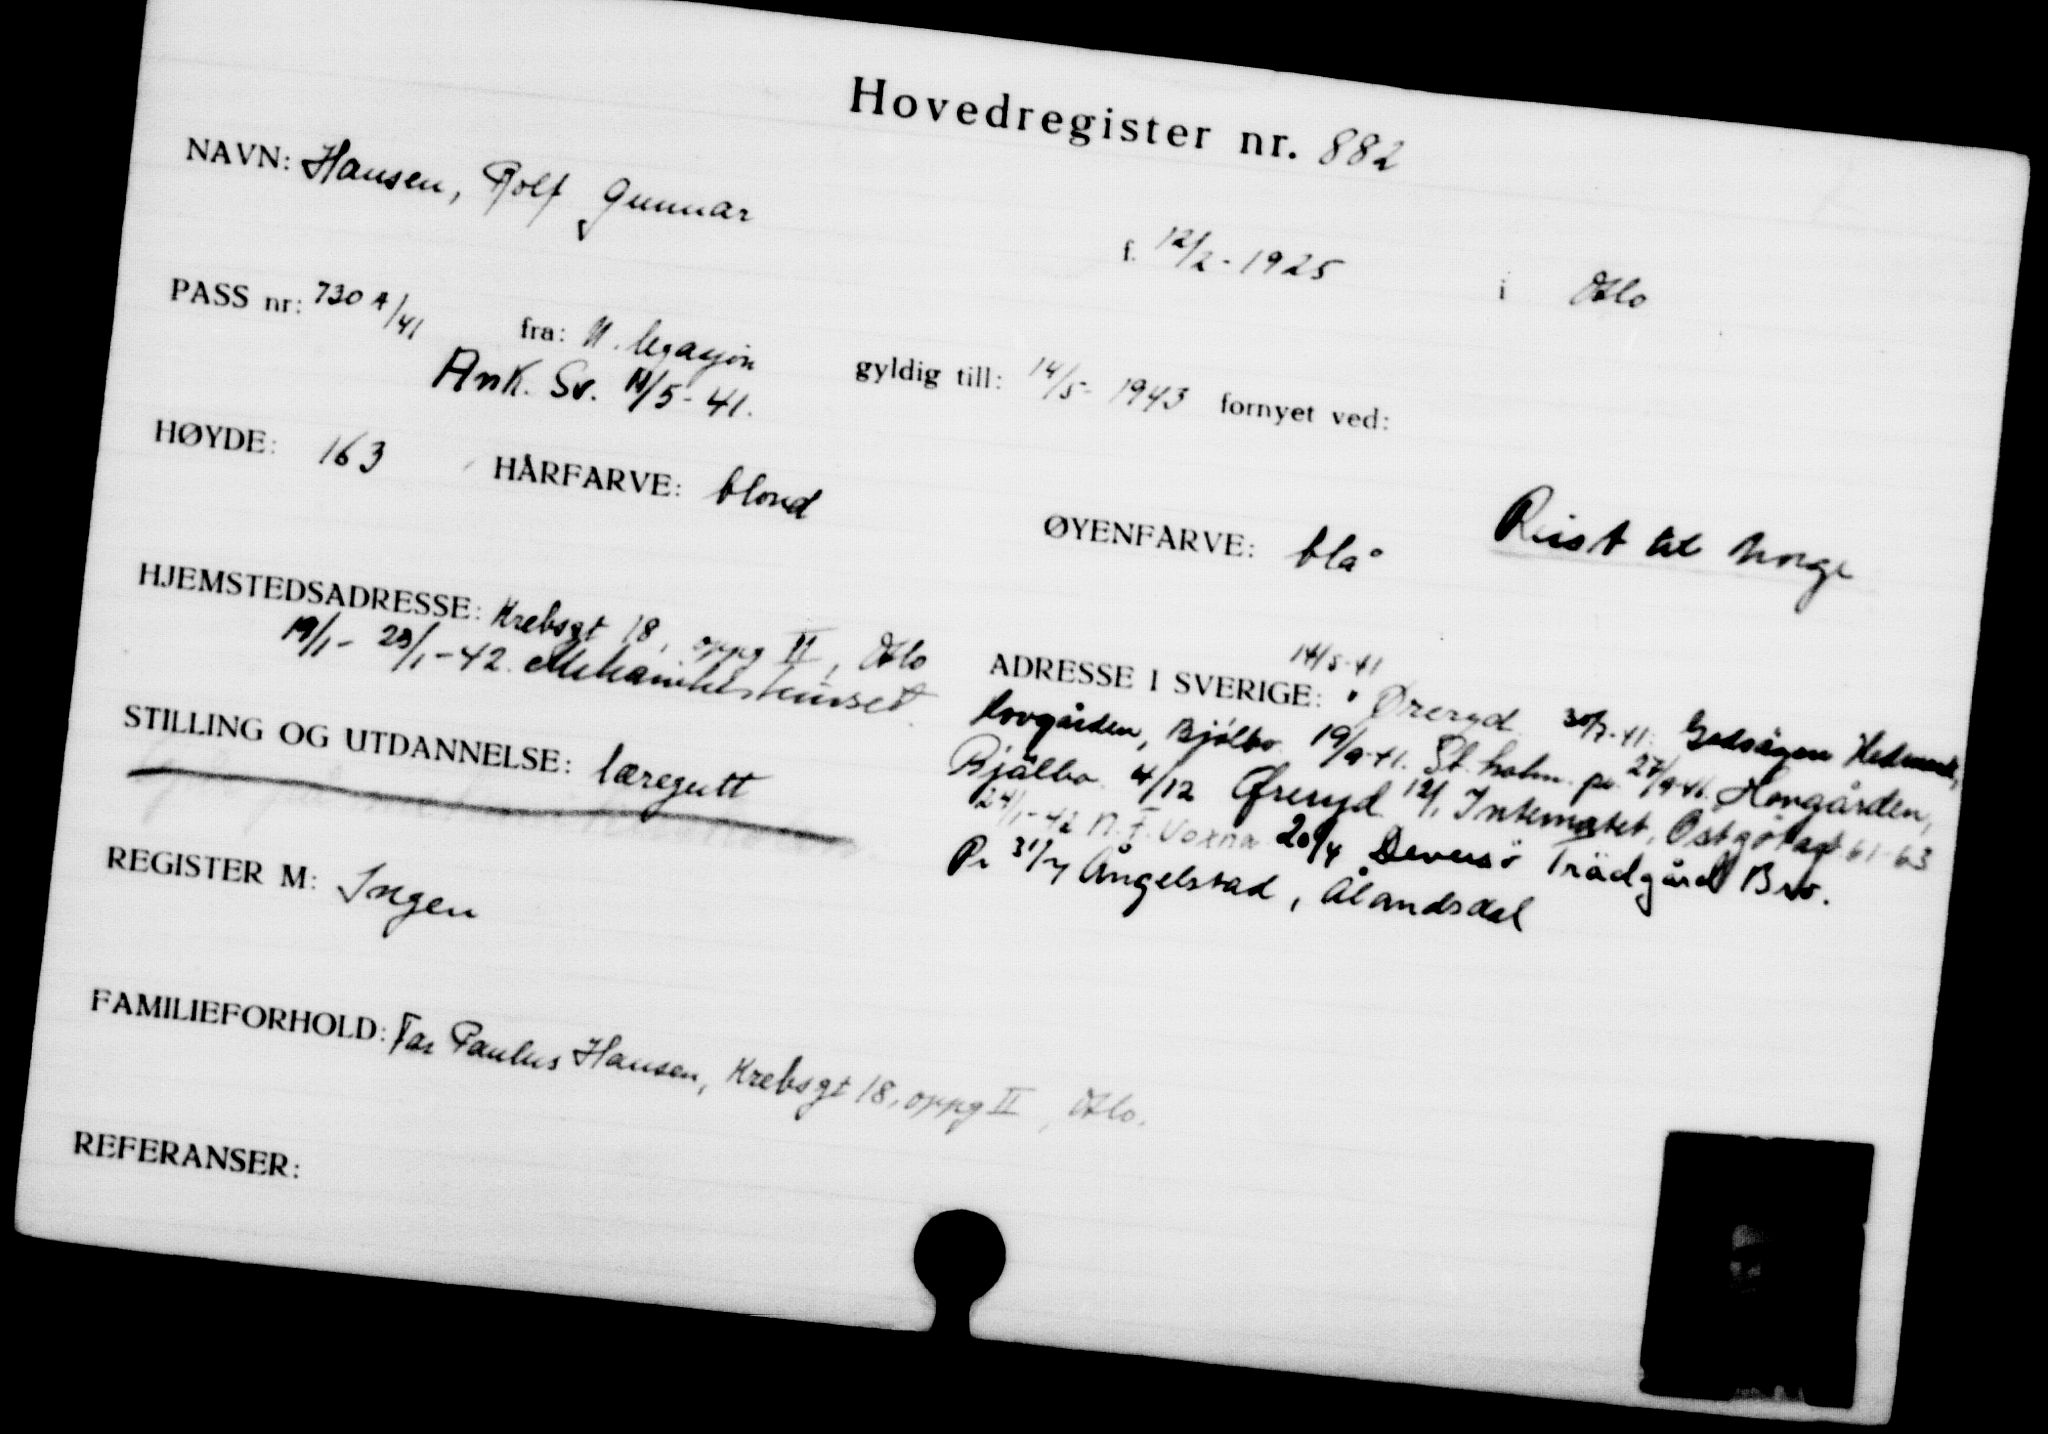 Hovedregister nr. 882
NAVN: Hansen, Rolf Gunnar
f. 12/2-1925 i Oslo
PASS nr: 730 A/41 fra: N. legasjon gyldig till: 14/5-1943 fornyet ved:
Ank. Sv. 14/5-41.
HØYDE: 163 HÅRFARVE: blond ØYENFARVE: blå
Reist til Norge
HJEMSTEDSADRESSE: Krebsgt 18, oppg II, Oslo
19/1- 23/1-42
STILLING OG UTDANNELSE: læregutt
REGISTER M: Ingen
FAMILIEFORHOLD: Far Paulus Hansen, Krebsgt 18, oppg II, Oslo.
REFERANSER:
14/5-41
ADRESSE I SVERIGE: Øreryd 30/7-41: Hedmark,
Hovgården, Bjälbo 19/9-41. St.holm pr. 27/9-41. Hovgården,
Bjälbo 4/12 Øreryd 12/1 Internatet, Östgötagt 61-63
24/1-42 N.F. Voxna 20/4 Deversö Trädgård Bro.
Pr 31/7 Ångelstad, Ålandsdal